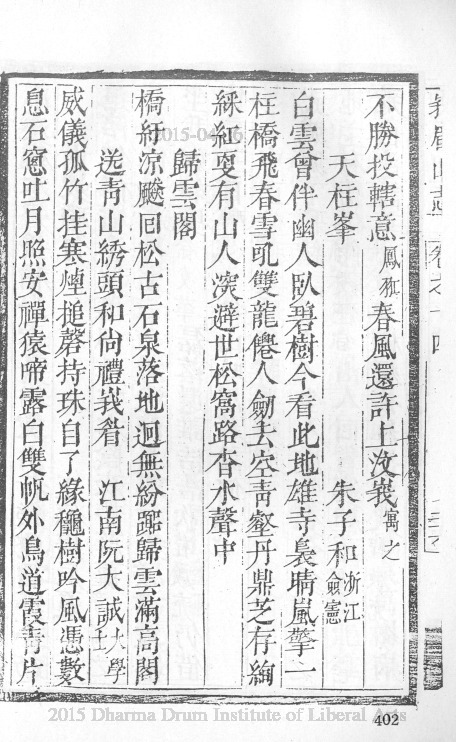 不勝投轄意鳳孤春風還許上汶峩寓之
天柱峯 朱子和浙江僉憲
白雲會伴幽人臥碧樹今看此地雄寺裊晴嵐擎一
柱橋飛春雪吼雙龍僊人劒去空靑壑丹鼎芝存絢
綵紅更有山人深避世松窩路杳水聲中
歸雲閣
橋紆凉飈回松古石泉落地迥無紛踪歸雲滿高閣
送靑山綉頭和尙禮峩眉 江南阮大諴大學士
威儀孤竹挂寒煙搥磬持珠自了緣穐樹吟風憑數
息石窓吐月照安禪猿啼露白雙帆外鳥道霞靑片
峩眉山志 卷之十四
402
2015 Dharma Drum Institute of Liberal Arts